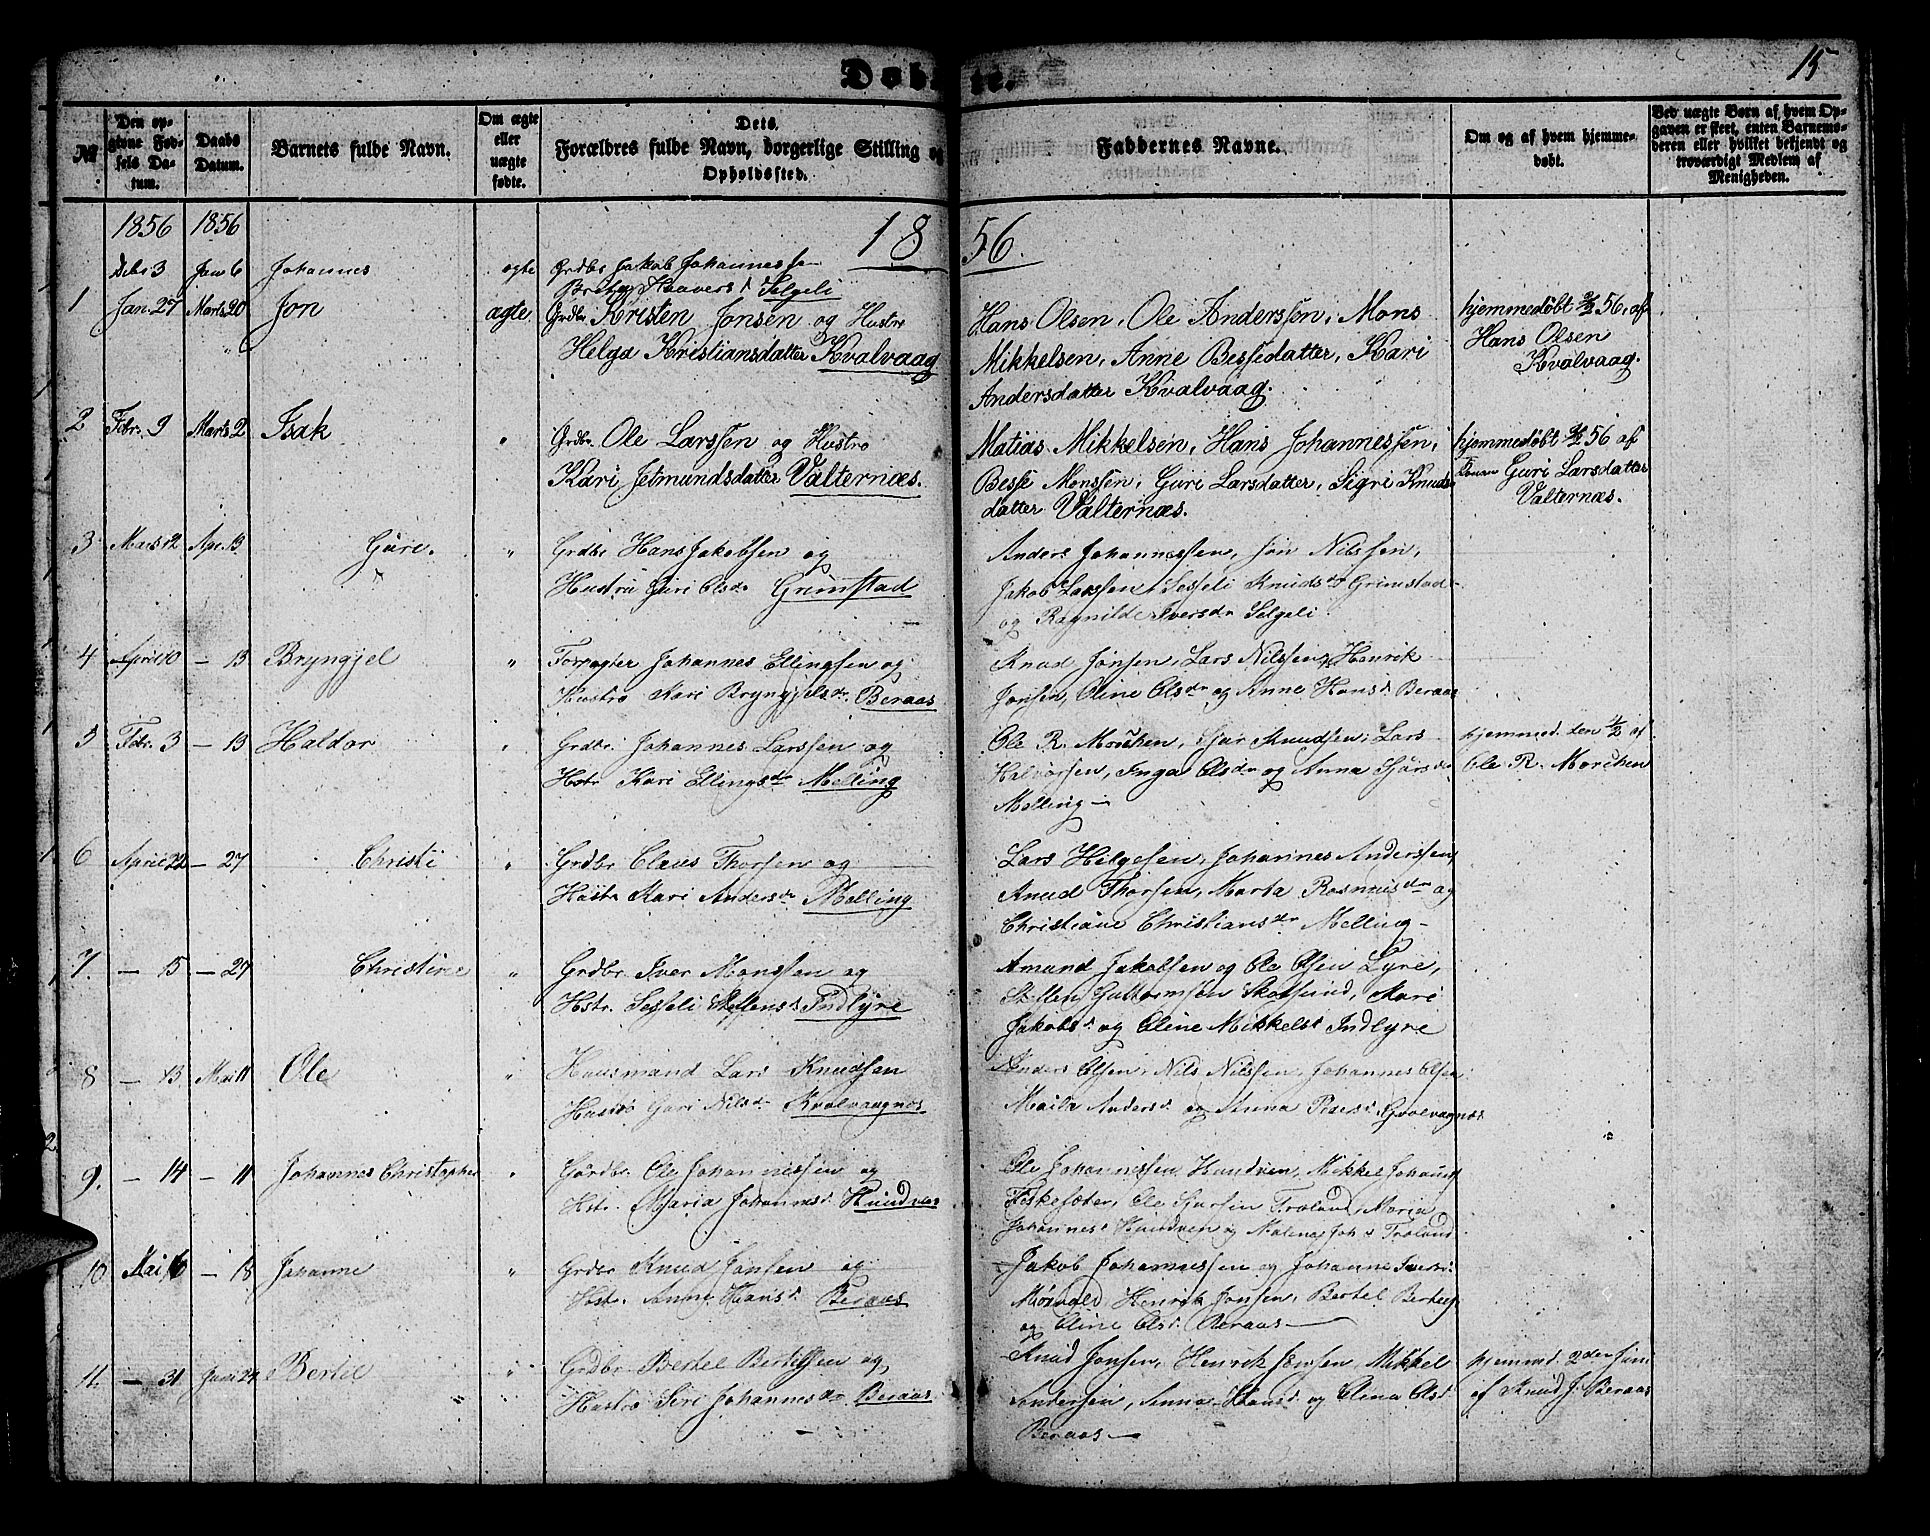 15
Døbte.
No
Den opgivne Fødsels Datum.
Daabs Datum.
Barnets fulde Navn.
Om ægte eller uægte fødte.
Dets Forældres fulde Navn, borgerlige Stilling og Opholdssted.
Faddernes Navne.
Om og af hvem hjemmedøbt.
Ved uægte Børn af hvem Opgaven er skeet, enten Barnemoderen eller hvilket bekjendt og troværdigt Medlem af Menigheden.
1856 1856 1856.
Debr 3 Jan 6 Johannes ægte Grdbr Jakob Johannessen
Brita Haavers d. Selgeli
1 Jan. 27 Marts 20 Jon ægte Grdbr Kristen Jonsen og Hustro
Helga Kristiansdatter Kvalvaag
Hans Olsen, Ole Anderssen, Mons
Mikkelsen, Anne Bessedatter, Kari
Andersdatter Kvalvaag.
hjemmedøbt 56, af
Hans Olsen
Kvalvaag.
2 Febr. 9 Marts 2 Isak " Grdbr. Ole Larssen og Hustro
Kari Jetmundsdatter Valternæs.
Matias Mikkelsen, Hans Johannessen,
Besse Monssen, Guri Larsdatter, Sigri Knuds-
datter Valternæs.
hjemmedøbt 56 af
Konen Guri Larsdatter
Valternæs.
3 Marts 12 Apr. 13 Gure. " Grdbr Hans Jakobsen og
Hustru Guri Olsdr Grimstad
Anders Johannessen, Jon Nilssen,
Jakob Larssen, Sesseli Knudsdr Grimstad
og Ragnilde Iversdr Selgeli.
4 April 10 - 13 Bryngjel " Forpagter Johannes Ellingsen og
Hustro Kari Bryngjelsdr. Beraas
Knud Jonsen, Lars Nilssen, Henrik
Jonsen, Oline Olsdr og Anne Hans d. Beraas
5 Febr. 3 - 13 Haldor " Grdbr. Johannes Larssen og
Hstr Kari Ellingsdr Melling
Ole R. Morchen, Sjur Knudsen, Lars
Halvorsen, Inga Olsdr og Anna Sjursdr
Melling -
hjemmed. den 4/2 af
Ole R. Morchen
6 April 22 - 27 Christi " Grdbr Claus Thorsen og
Hustr Kari Andersdr Melling
Lars Helgesen, Johannes Anderssen,
Knud Thorsen, Marta Rasmusdr og
Christiane Christiansdr Melling -
7. - 15 - 27 Christine " Grdbr. Iver Monssen og
Hstr. Sesseli Steffens d. Indlyre
Amund Jakobsen og Ole Olsen Lyre,
Steffen Guttormsen Skotsund, Kari
Jakobs d. og Oline Mikkels d. Indlyre
8 - 13 Mai 11 Ole " Huusmand Lars Knudsen
Hustro Guri Nilsdr Kvalvaagnæs
Anders Olsen, Nils Nilssen, Johannes Olsen
Anders d. og Anna
9. - 14 - 11 Johannes Christopher " Gårdbr. Ole Johannessen og
Hstr. Maria Johannes d. Hundvæ
Ole Johannessen Hundven, Mikkel Johanns
Fiskesæter, Ole Sjursen Troland, Maria
Johannes d. Hundven og Malina Joh d. Troland
10 Mai 6 - 18 Johanne " Grdbr Knud Jonsen og
Hstr. Anne Hans d. Beraas
Jakob Johannessen og Johanne Ivers d.
Mørvold, Henrik Jonsen, Bertel Bertels
og Oline Ols d. Beraas -
11. - 31 Juni 24 Bertil " Grdbr Bertel Bertelsen og
Hustro Siri Johannesdr Beraas.
Knud Jonsen, Henrik Jonsen, Mikkel
Andersen, Anna Hans d. og Olina Ols d.
Beraas -
hjemmed. 2den Juni
af Knud J. Beraas